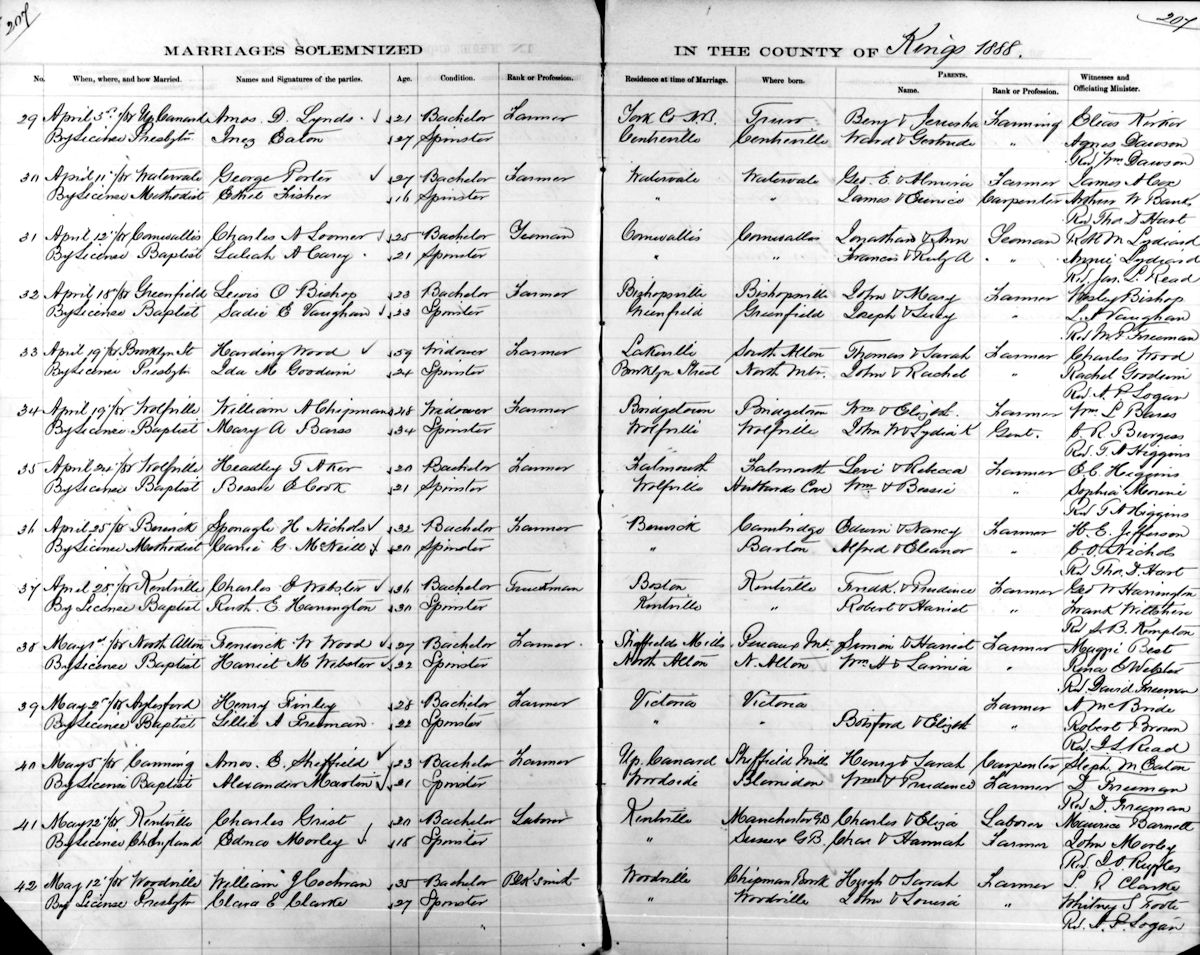 207
207
MARRIAGES SOLEMNIZED IN THE COUNTY OF Kings 1888.
No. When, where, and how Married. Names and Signatures of the parties. Age. Condition. Rank or Profession. Residence at time of Marriage. Where born. PARENTS. Name. Rank or Profession. Witnesses and Officiating Minister.
29 April 3rd /88 Up. Canard Amos D. Lynds 21 Bachelor Farmer York Co N.B. Truro Benj & Jerusha Farming Elias
By License Presbytn Inez Eaton 27 Spinster Centreville Centreville Ward & Gertrude " Agnes Dawson
Rev Wm Dawson
30 April 11th /88 Watervale George Porter 27 Bachelor Farmer Watervale Watervale Geo. E. & Almira Farmer James A Cox
By License Methodist Ethel Fisher 16 Spinster " " James & Eunice Carpenter Arthur W Banks
Rev Tho. D. Hart
31 April 12th /88 Cornwallis Charles A Loomer 25 Bachelor Yeoman Cornwallis Cornwallis Jonathan & Ann Yeoman R. M Lydiard
By License Baptist Laleah A Carey 21 Spinster " " Francis & Ruby A " Annie Lydiard
Rev. Jas. L. Read
32 April 18th /88 Greenfield Lewis O Bishop 23 Bachelor Farmer Bishopsville Bishopsville John & Mary Farmer Wesley Bishop
By License Baptist Sadie E Vaughan 23 Spinster Greenfield Greenfield Joseph & Lucy " L. A Vaughan
Rev M P Freeman
33 April 19th /88 Brooklyn St Harding Wood 59 Widower Farmer Lakeville South Alton Thomas & Sarah Farmer Charles Wood
By License Presbytn Ida M Goodwin 24 Spinster Brooklyn Street North Mtn. John & Rachel " Rachel Goodwin
Rev A. P. Logan
34 April 19th /88 Wolfville William A Chipman 48 Widower Farmer Bridgetown Bridgetown Wm & Elizth. Farmer Wm. L Barss
By License Baptist Mary A Barss 34 Spinster Wolfville Wolfville John W & Lydia K Gent. A. R Burgess
Rev. T. A Higgins
35 April 24th /88 Wolfville Headley T Aker 20 Bachelor Farmer Falmouth Falmouth Levi & Rebecca Farmer E C Higgins
By License Baptist Bessie E Cook 21 Spinster Wolfville Cove Wm. & Bessie " Sophia
Rev T A Higgins
36 April 25th /88 Berwick Sponagle H Nichols 32 Bachelor Farmer Berwick Cambridge Edwin & Nancy Farmer H. E. Jefferson
By License Methodist Carrie G. McNeill 20 Spinster " Barton Alfred & Eleanor " C. O. Nichols
Rev. Tho. D. Hart
37 April 28th /88 Kentville Charles Webster 36 Bachelor Truckman Boston Kentville Fredk. & Prudence Farmer Geo W Harrington
By License Baptist Ruth. E Harrington 30 Spinster Kentville " Robert & Harriet " Frank Wiltshire
Rev. Kempton
38 May 1st /88 North Alton Fenwick W Wood 27 Bachelor Farmer Sheffields Mills Pereaux Mt. Simon & Harriet Farmer Maggie Best
By License Baptist Harriet M Webster 22 Spinster North Alton N. Alton Wm. A & Lavinia " Rena E Webster
Rev David Freeman
39 May 2nd /88 Aylesford Henry Finley 28 Bachelor Farmer Victoria Victoria Farmer A McBride
By License Baptist Lillie A Freeman 22 Spinster " Botsford & Elizth " Robert Brown
Rev. J L Read
40 May 5th /88 Canning Amos. E. Sheffield 23 Bachelor Farmer Up. Canard Sheffield Mills Henry & Sarah Carpenter Steph. M. Eaton
By License Baptist Alexander Martin 21 Spinster Woodside Blomidon Wm & Prudence Farmer D Freeman
Rev D. Freeman
41 May 12th /88 Kentville Charles Grist 20 Bachelor Laborer Kentville Manchester G.B Charles & Eliza Laborer Maurice Barnett
By License Ch England Edna Morley 18 Spinster " Sussex G.B. Chas & Hannah Farmer John Morley
Rev. J O Ruggles
42 May 12th /88 Woodville William J Cochran 35 Bachelor Blk. smith Woodville Chipman Brook Hugh & Sarah Farmer S. R Clarke
By License Presbytn Clara E Clarke 27 Spinster " Woodville John & Louisa " Whitney S Foote
Rev. A. P. Logan